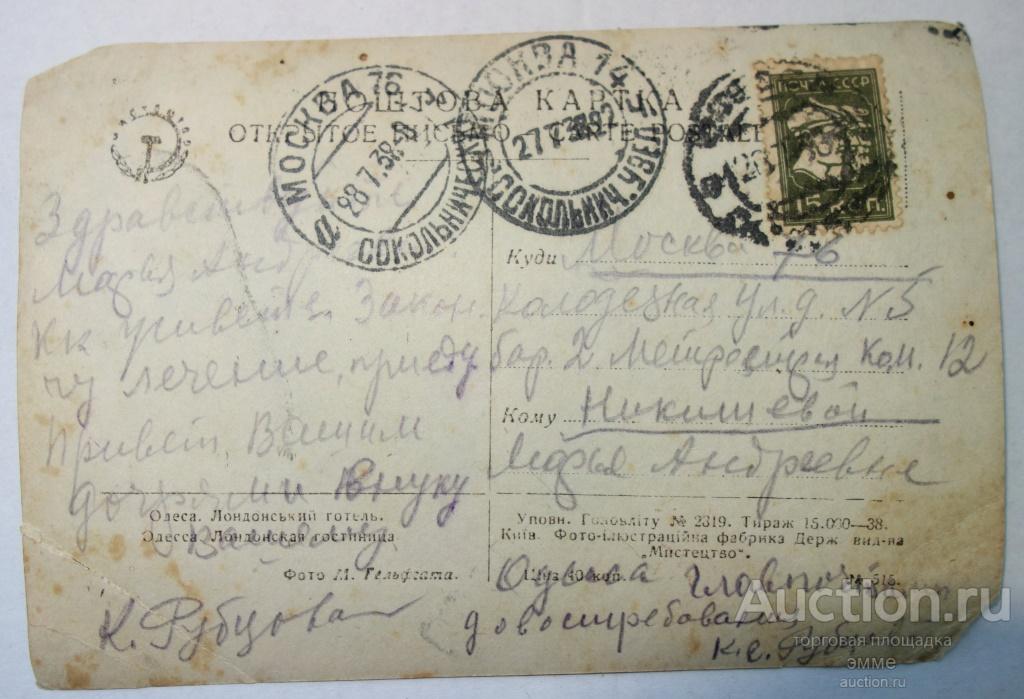 ПОШТОВА КАРТКА
ОТКРЫТОЕ ПИСЬМО CARTE POSTALE
МОСКВА 76
28 7 38
СОКОЛЬНИЧ
МОСКВА 14
27 7 38
СОКОЛЬНИЧ
ПОЧТА СССР
15
МИСТЕЦТВО
Здравствуйте
Марья Андр
Кк живете. Закон
чу лечение, приеду
Привет Вашим
дочерями внуку
Вашему
К. Рубцова
Куди Москва 76
Колодезная ул. д. N 5
бар. 2 Метростроя Ком. 12
Кому Никишевой
Марья Андреевне
Одеса. Лондонський готель.
Одесса. Лондонская гостиница
Фото М. Гельфгата.
Уповн. Головліту № 2319. Тираж 15.000—38.
Київ. Фото-ілюстраційна фабрика Держ вид-ва
„Мистецтво“.
Ціна 40 коп. № 515.
Одесса Главпочтамт
довостребования
К. е. Руб
Auction.ru
торговая площадка
ЭММЕ
auction.ru